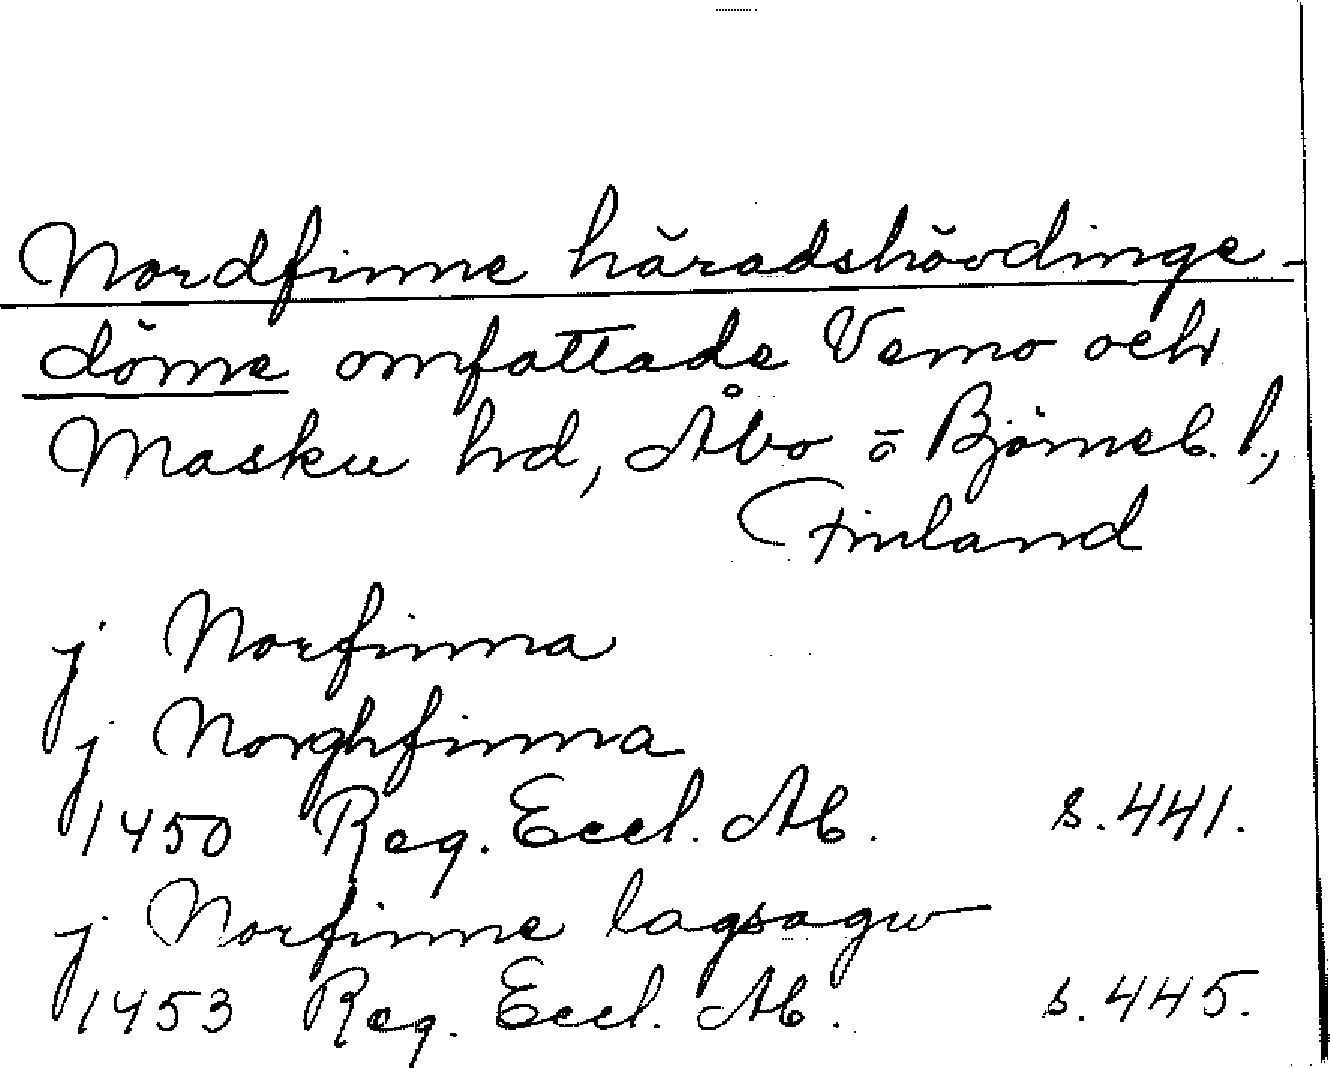 Nordfinne häradshövdinge-
döme omfattade Vemo och
Masku hd, Åbo o Björneb. l.,
Finland
j Norfinna
j Norghfinna
1450 Reg. Eccl. Ab. s. 441.
j Norfinne lagsagw
1453 Reg. Eccl. Ab. s. 445.